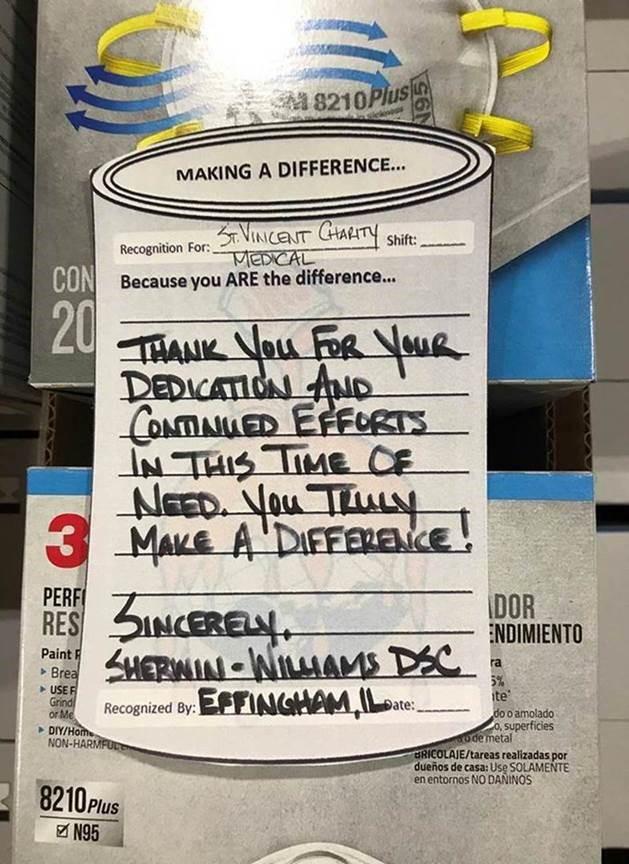 3M 8210Plus
N95
MAKING A DIFFERENCE...
Recognition For: ST. VINCENT CHARITY MEDICAL Shift:
Because you ARE the difference...
CON
20
THANK YOU FOR YOUR
DEDICATION AND
CONTINUED EFFORTS
IN THIS TIME OF
NEED. YOU TRULY
MAKE A DIFFERENCE!
SINCERELY,
SHERWIN-WILLIAMS DSC
Recognized By: EFFINGHAM, IL Date:
3
PERF
RES
Paint P
Brea
USE F
Grindi
or Me
DIY/Home
NON-HARMFUL
8210Plus
N95
ADOR
ENDIMIENTO
ra
5%
te*
do o amolado
o, superficies
o de metal
BRICOLAJE/tareas realizadas por
dueños de casa: Use SOLAMENTE
en entornos NO DAÑINOS